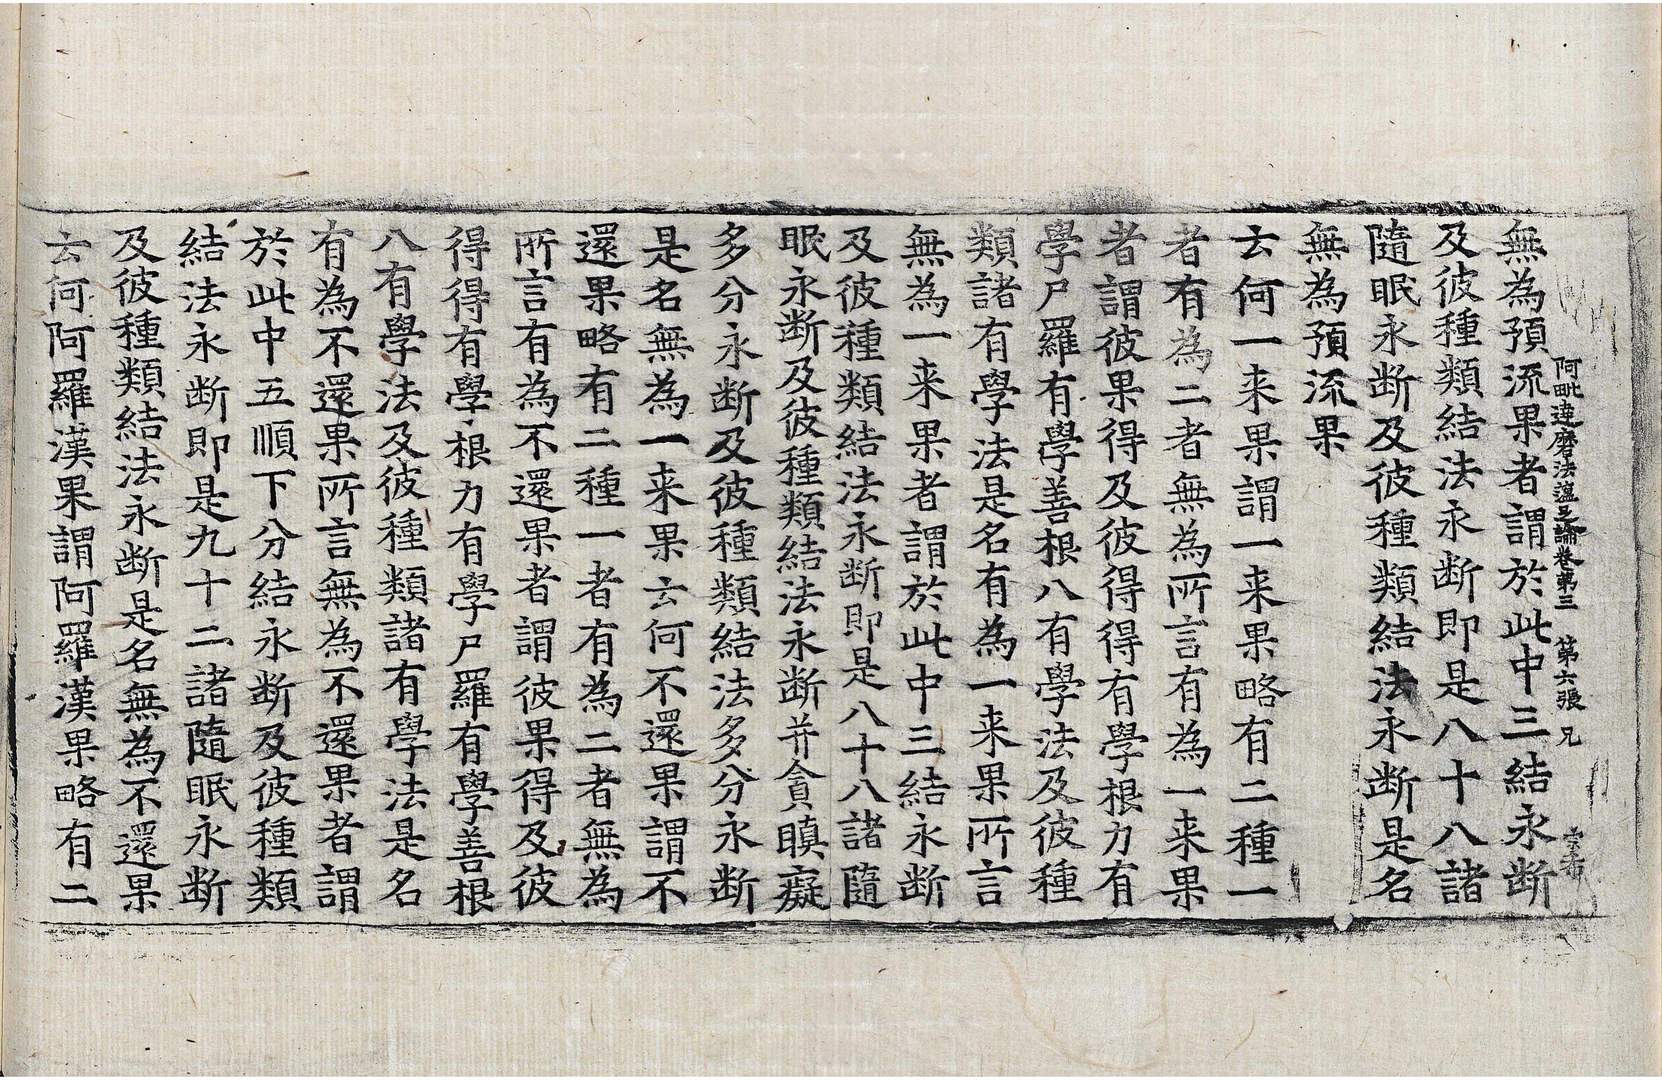 阿毗達磨法蘊足論卷第三 第六張 兄
無為預流果者謂於此中三結永断
及彼種類結法永断即是八十八諸
隨眠永断及彼種類結法永断是名
無為預流果
云何一来果謂一来果略有二種一
者有為二者無為所言有為一来果
者謂彼果得及彼得得有學根力有
學尸羅有學善根八有學法及彼種
類諸有學法是名有為一来果所言
無為一来果者謂於此中三結永断
及彼種類結法永断即是八十八諸隨
眠永断及彼種類結法永断并貪瞋癡
多分永断及彼種類結法多分永断
是名無為一来果云何不還果謂不
還果略有二種一者有為二者無為
所言有為不還果者謂彼果得及彼
得得有學根力有學尸羅有學善根
八有學法及彼種類諸有學法是名
有為不還果所言無為不還果者謂
於此中五順下分結永断及彼種類
結法永断即是九十二諸隨眠永断
及彼種類結法永断是名無為不還果
云何阿羅漢果謂阿羅漢果略有二